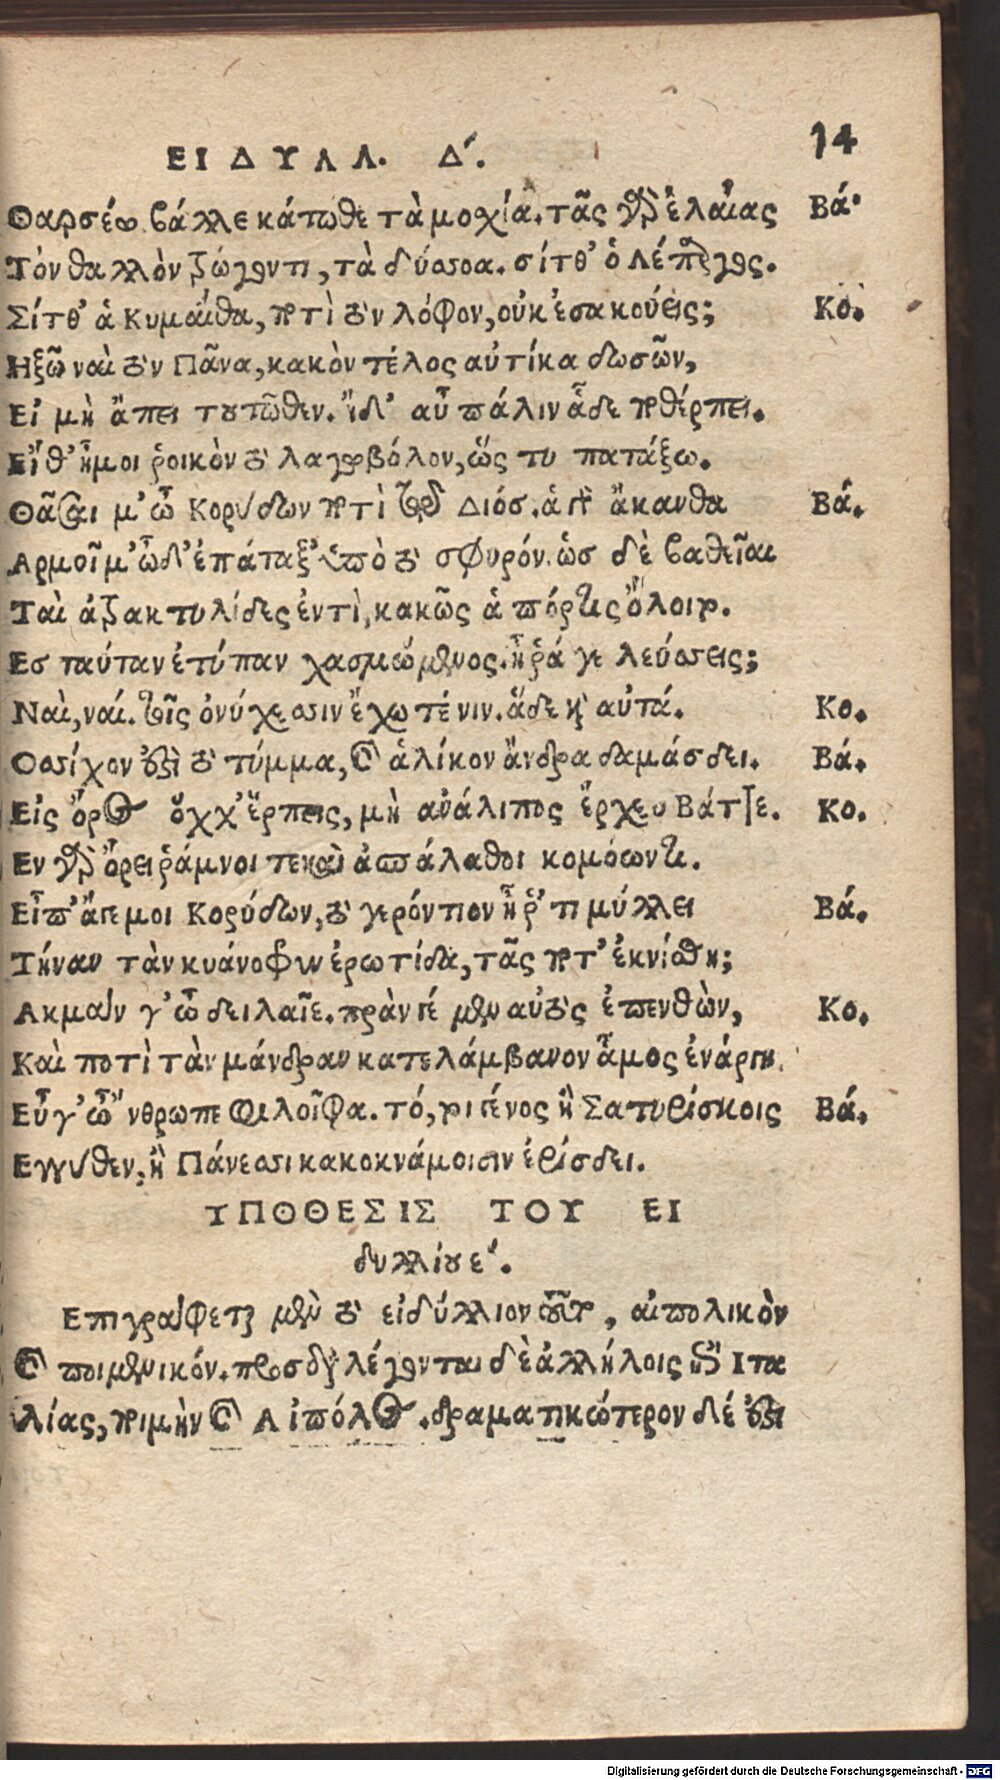 ΕΙΔΥΛΛ. Δ´. 14
Θαρσέω. βάλλε κάτωθε τὰ μοχία. τᾶς γὸ ἐλαίας Βά.
Τὸν θαλλὸν τρώγοντι, τὰ δύσσοα. σίτθ’ ὁ λέπαργος.
Σίτθ’ ἁ Κυμαίθα, ποτὶ τὸν λόφον, οὐκ ἐσακούεις; Κο.
Ηξῶ ναὶ τὸν Πᾶνα, κακὸν τέλος αὐτίκα δωσῶν,
Εἰ μὴ ἄπει τουτῶθεν. ἴδ’ αὖ πάλιν ἅδε ποθέρπει.
Εἴθ’ ἦμοι ῥοικὸν τὸ λαγωβόλον, ὥς τυ πατάξω.
Θᾶσαι μ’ ὦ Κορύδων ποτὶ τοῦ Διός. ἁ γὰρ ἄκανθα Βά.
Αρμοῖ μ’ ὧδ’ ἐπάταξ’ ὑπὸ τὸ σφυρόν. ὡς δὲ βαθεῖαι
Ταὶ ἀτρακτυλίδες ἐντὶ, κακῶς ἁ πόρτις ὄλοιτο.
Ες ταύταν ἐτύπαν χασμεύμενος. ἦ ῥά γε λεύσσεις;
Ναὶ, ναί. τοῖς ὀνύχεσσιν ἔχω τέ νιν. ἅδε καὶ αὐτά. Κο.
Οσσίχον ἐστὶ τὸ τύμμα, καὶ ἁλίκον ἄνδρα δαμάσδει. Βά.
Εἰς ὄρος ὅχχ’ ἕρπεις, μὴ ἀνάλιπος ἔρχευ Βάττε. Κο.
Εν γὸ ὄρει ῥάμνοι τε καὶ ἀσπάλαθοι κομόωντι.
Εἶπ’ ἄγε μοι Κορύδων, τὸ γερόντιον ἦ ῥ’ ἔτι μύλλει Βά.
Τήναν τὰν κυάνοφρυν ἐρωτίδα, τᾶς ποτ’ ἐκνίσθη;
Ακμάν γ’ ὦ δειλαῖε. πράν γέ μεν αὐτὸς ἐπενθὼν, Κο.
Καὶ ποτὶ τὰν μάνδραν κατελάμβανον ἇμος ἐνάργει.
Εὖ γ’ ὦ ’νθρωπε φιλοῖφα. τό, τοι γένος ἢ Σατυρίσκοις Βά.
Εγγύθεν, ἢ Πάνεσσι κακοκνάμοισιν ἐρίσδει.
ΥΠΟΘΕΣΙΣ ΤΟΥ ΕΙ
δυλλίου ε´.
Επιγράφεται μὲν τὸ εἰδύλλιον τοῦτο, αἰπολικὸν
καὶ ποιμενικόν. προσδιαλέγονται δὲ ἀλλήλοις ἐπὶ Ιτα
λίας, ποιμὴν καὶ Αἰπόλος. δραματικώτερον δέ ἐστι
Digitalisierung gefördert durch die Deutsche Forschungsgemeinschaft - DFG